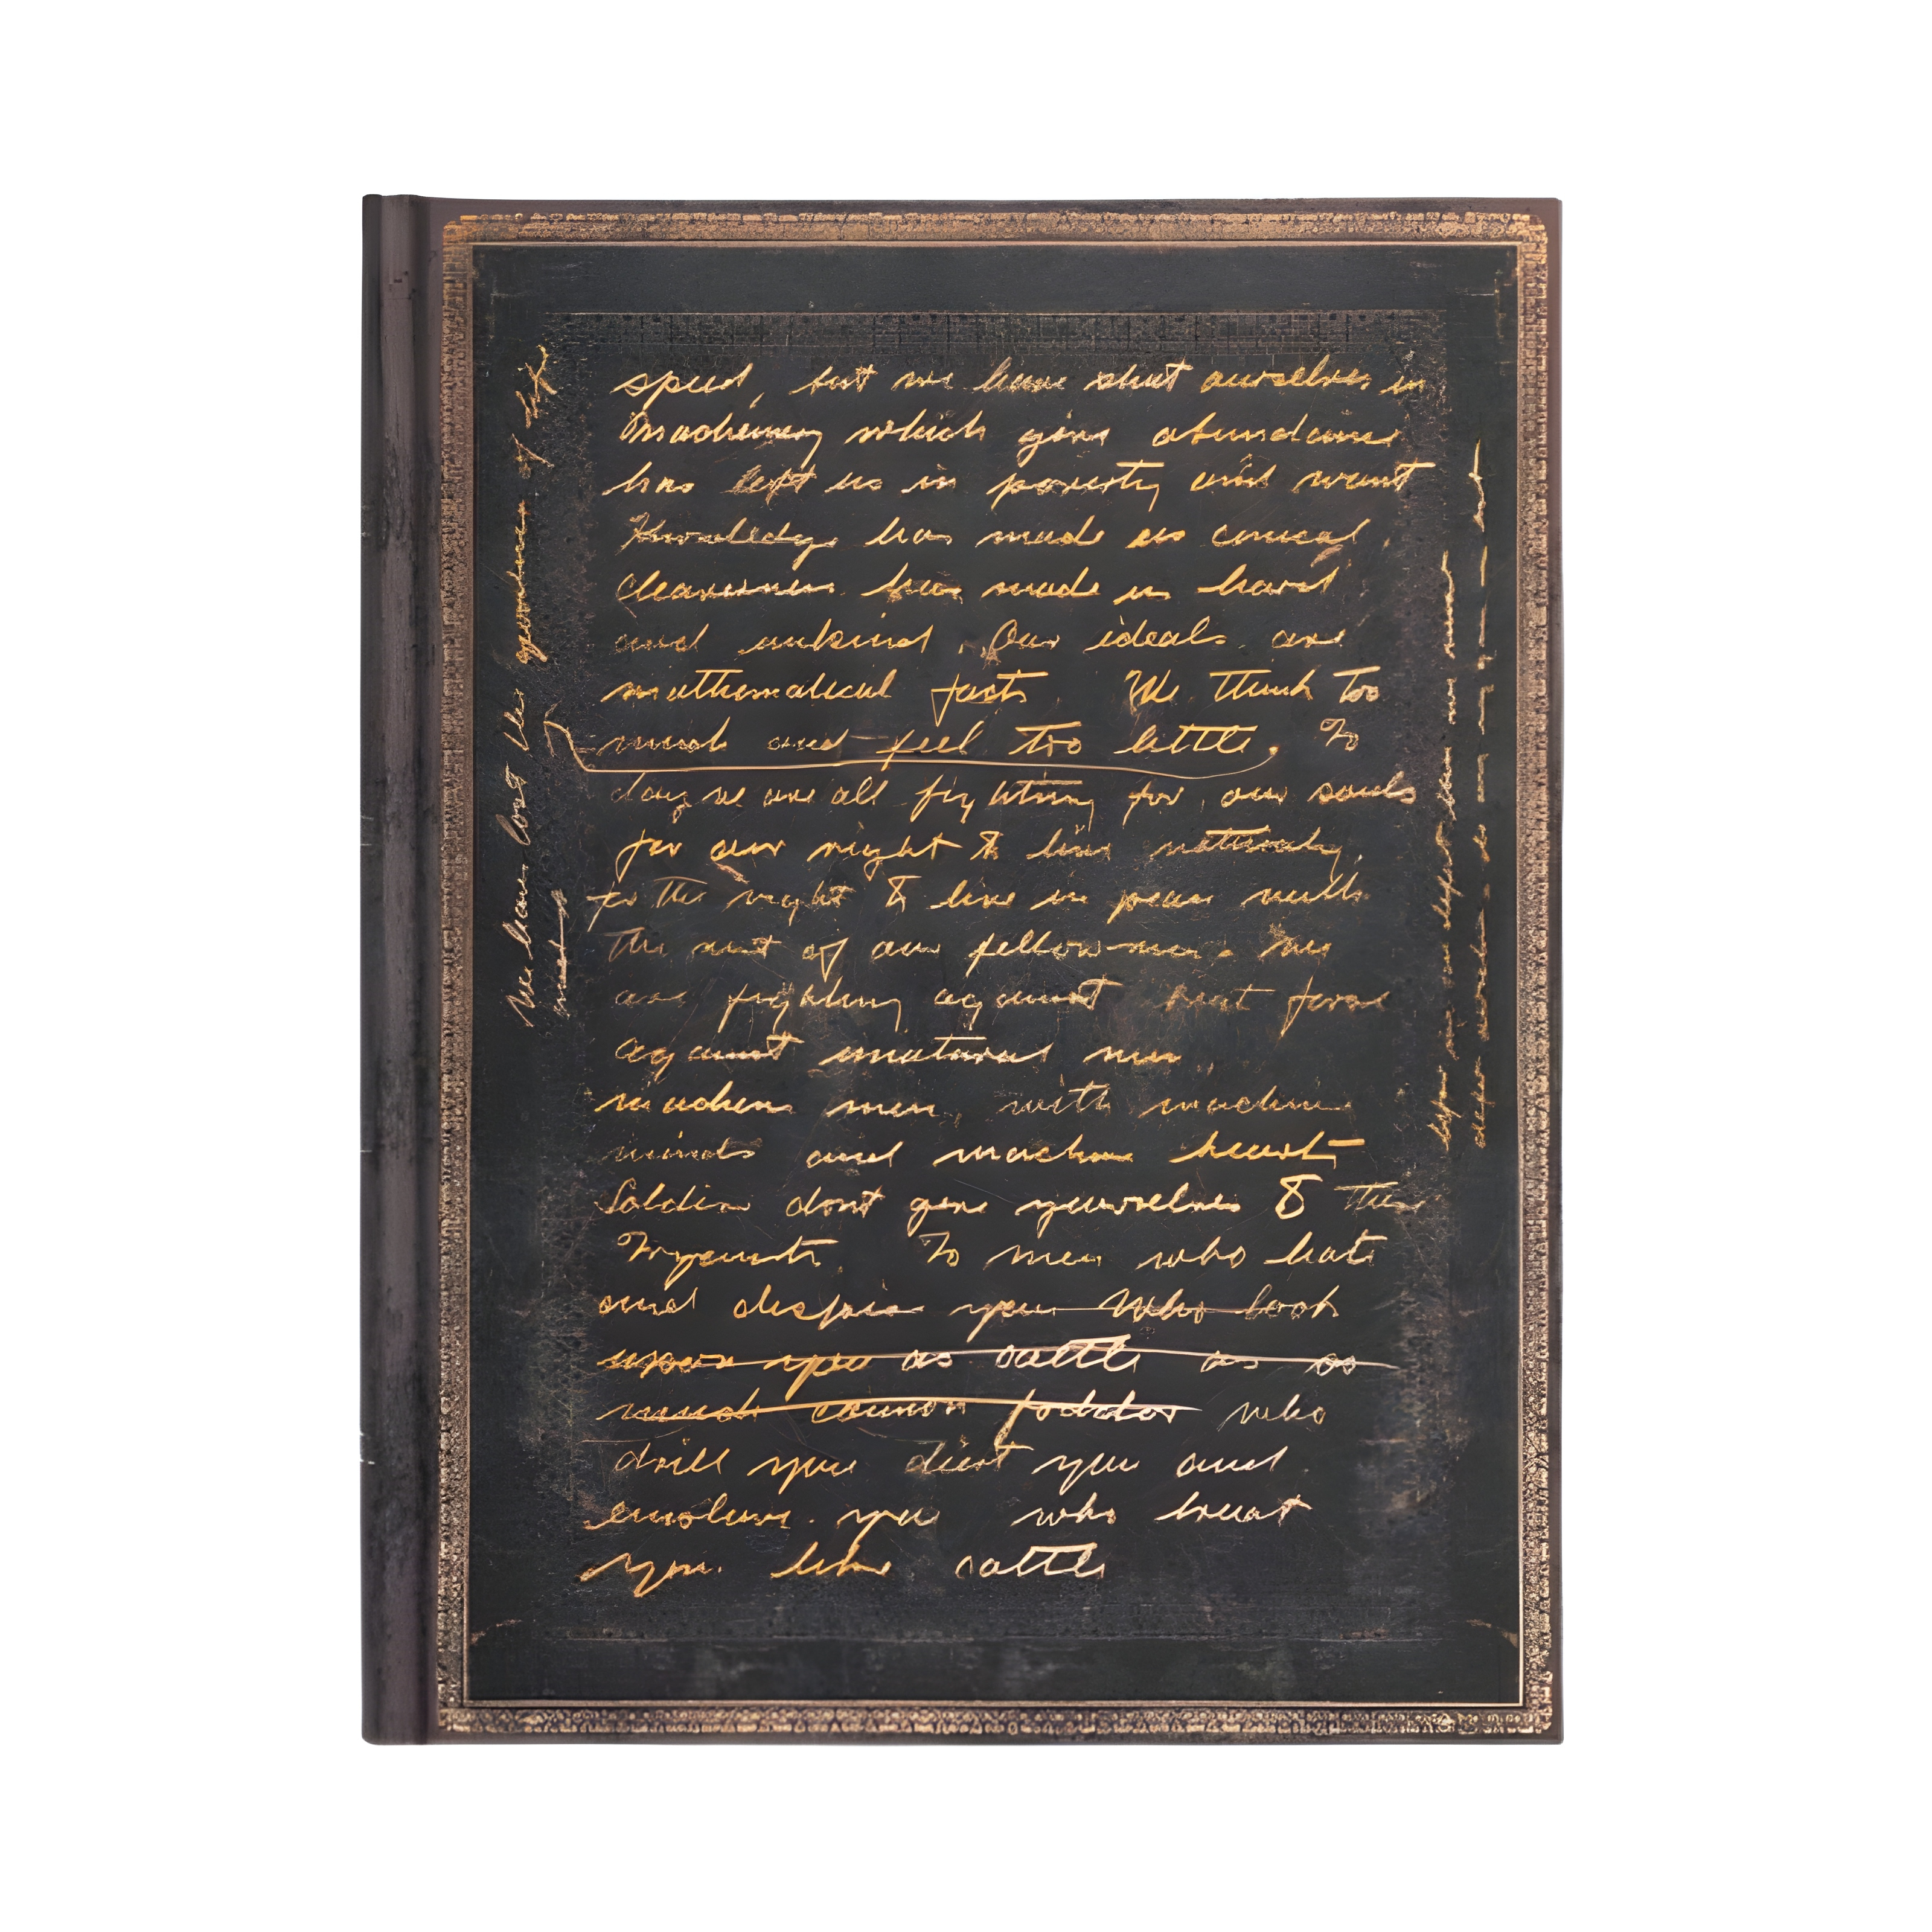 speed, but we have shut ourselves in
Machinery which gives abundance
has left us in poverty and want
Knowledge has made us cynical,
cleverness has made us hard
and unkind. Our ideals are
mathematical facts. We think too
much and feel too little. To
day we are all fighting for our souls
for our right to live naturaly,
for the right to live in peace with
the rest of our fellow-men.
are fighting against
against unatural men,
machine men, with machine
minds and machine hearts
Soldiers dont give yourselves to these
To men who hate
and despise you who look
upon you as cattle as so
much cannon fodder who
drill you diet you and
enslave you who treat
you like cattle
We have lost the of life